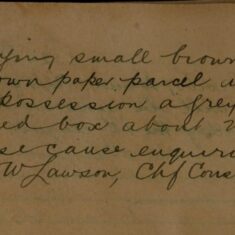 ying small brown
own paper parcel
possession a grey
ed box about
se cause enquiri
W Lawson, Chf Cons